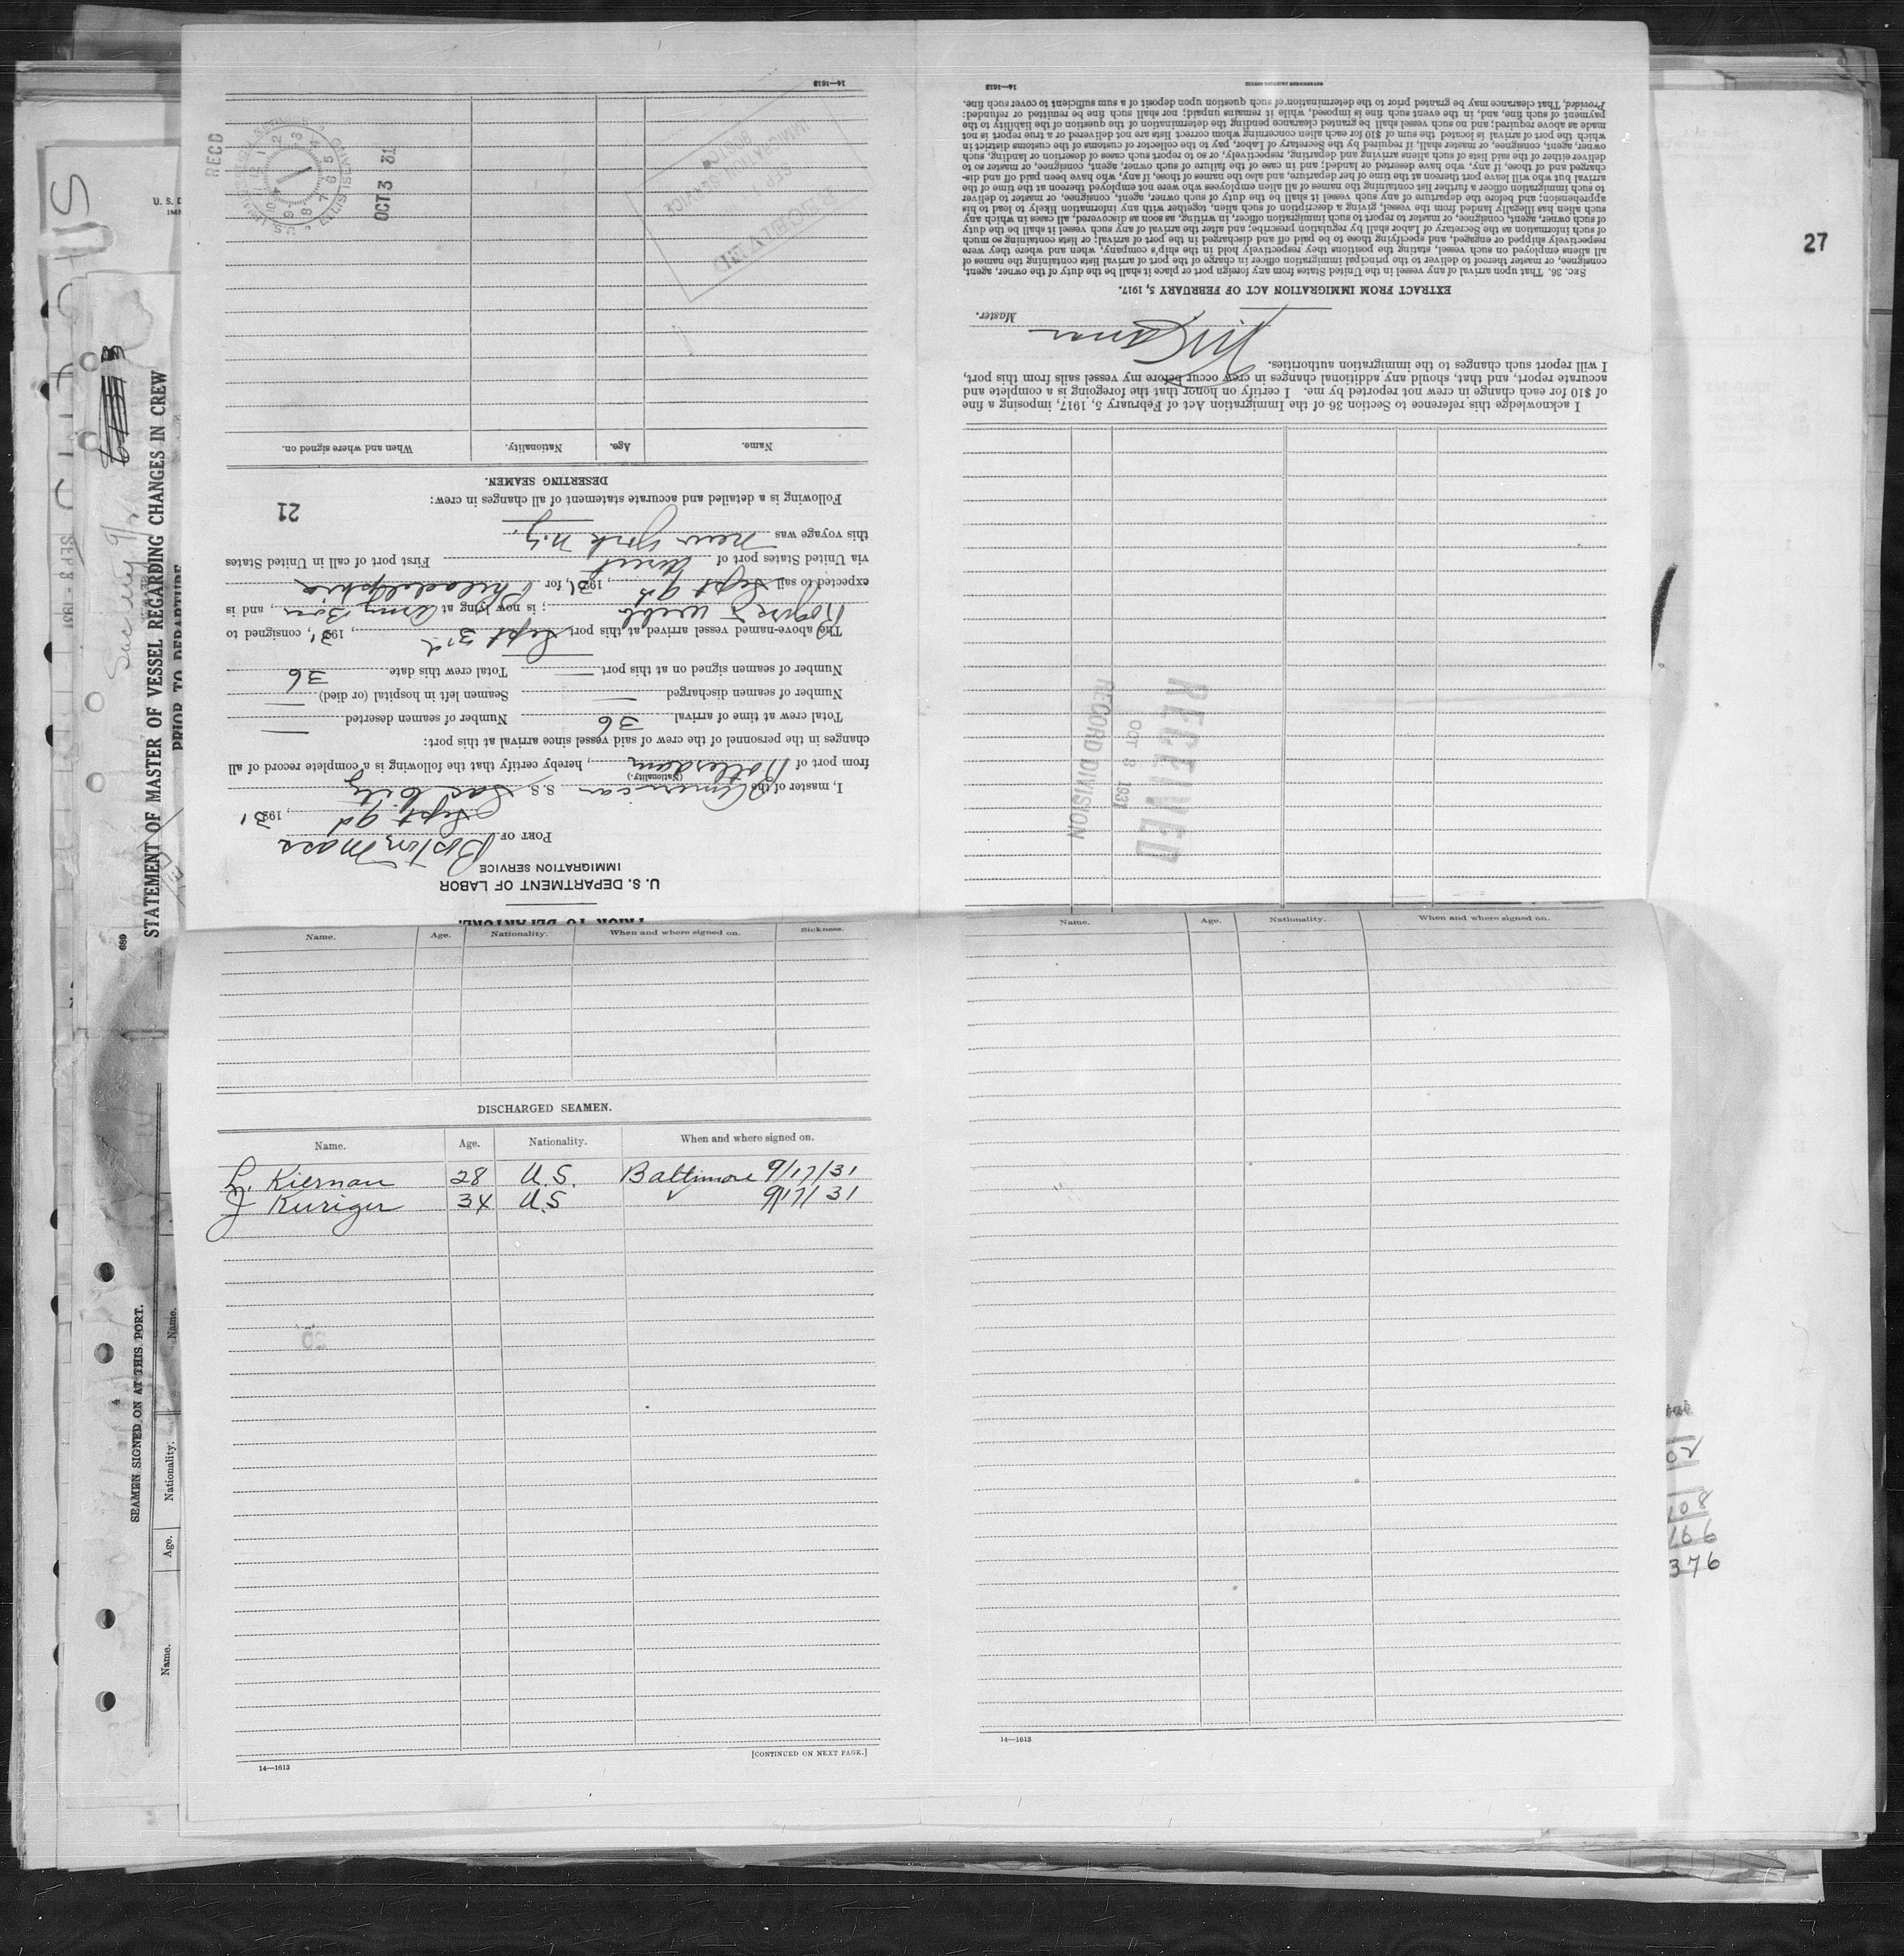 27
PRIOR TO DEPARTURE.
U. S. DEPARTMENT OF LABOR
IMMIGRATION SERVICE
PORT OF Boston Mass
Sept 9th, 1931
I, master of the American S. S. Sac City
(Nationality.)
from port of Rotterdam, hereby certify that the following is a complete record of all
changes in the personnel of the crew of said vessel since arrival at this port:
Total crew at time of arrival 36 Number of seamen deserted —
Number of seamen discharged — Seamen left in hospital (or died) —
Number of seamen signed on at this port — Total crew this date 36
The above-named vessel arrived at this port Sept 3rd, 1931, consigned to
Rogers & Webb; is now lying at Army Base, and is
expected to sail Sept 9th, 1931, for Philadelphia
via United States port of direct First port of call in United States
this voyage was New York N.Y.
Following is a detailed and accurate statement of all changes in crew:
21
DESERTING SEAMEN.
Name. Age. Nationality. When and where signed on.
14—1613
RECD
OCT 3 31
IMMIGRATION SERVICE
BOSTON
RECEIVED
OCT 3 1931
RECORD DIVISION
I acknowledge this reference to Section 36 of the Immigration Act of February 5, 1917, imposing a fine
of $10 for each change in crew not reported by me. I certify on honor that the foregoing is a complete and
accurate report, and that, should any additional changes in crew occur before my vessel sails from this port,
I will report such changes to the immigration authorities.
Master.
EXTRACT FROM IMMIGRATION ACT OF FEBRUARY 5, 1917.
SEC. 36. That upon arrival of any vessel in the United States from any foreign port or place it shall be the duty of the owner, agent,
consignee, or master thereof to deliver to the principal immigration officer in charge of the port of arrival lists containing the names of
all aliens employed on such vessel, stating the positions they respectively hold in the ship's company, when and where they were
respectively shipped or engaged, and specifying those to be paid off and discharged in the port of arrival; or lists containing so much
of such information as the Secretary of Labor shall by regulation prescribe; and after the arrival of any such vessel it shall be the duty
of such owner, agent, consignee, or master to report to such immigration officer, in writing, as soon as discovered, all cases in which any
such alien has illegally landed from the vessel, giving a description of such alien, together with any information likely to lead to his
apprehension; and before the departure of any such vessel it shall be the duty of such owner, agent, consignee, or master to deliver
to such immigration officer a further list containing the names of all alien employees who were not employed thereon at the time of the
arrival but who will leave port thereon at the time of her departure, and also the names of those, if any, who have been paid off and dis-
charged and of those, if any, who have deserted or landed; and in case of the failure of such owner, agent, consignee, or master so to
deliver either of the said lists of such aliens arriving and departing, respectively, or so to report such cases of desertion or landing, such
owner, agent, consignee, or master, shall, if required by the Secretary of Labor, pay to the collector of customs of the customs district in
which the port of arrival is located the sum of $10 for each alien concerning whom correct lists are not delivered or a true report is not
made as above required; and no such vessel shall be granted clearance pending the determination of the question of the liability to the
payment of such fine, and, in the event such fine is imposed, while it remains unpaid; nor shall such fine be remitted or refunded:
Provided, That clearance may be granted prior to the determination of such question upon deposit of a sum sufficient to cover such fine.
14—1613
GOVERNMENT PRINTING OFFICE
Name. Age. Nationality. When and where signed on. Sickness.
DISCHARGED SEAMEN.
Name. Age. Nationality. When and where signed on.
L. Kiernan 28 U.S. Baltimore 9/17/31
J Kuriger 34 U.S 9/17/31
[CONTINUED ON NEXT PAGE.]
14—1613
Name. Age. Nationality. When and where signed on.
14—1613
STATEMENT OF MASTER OF VESSEL REGARDING CHANGES IN CREW
PRIOR TO DEPARTURE
689
SEP 3 - 1931
Sac City
4
SEAMEN SIGNED ON AT THIS PORT.
Name. Age. Nationality. Name.
U. S. D
IMM
02
108
166
376